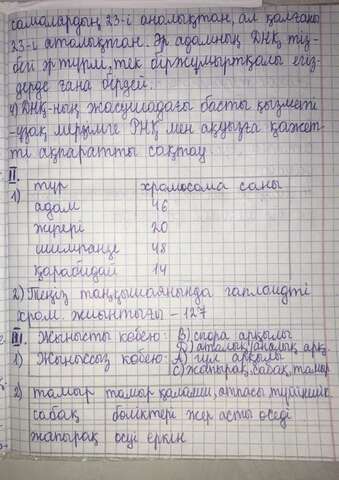 самалардың 23-і аналықтан, ал қалғаны
23-і аталықтан. Әр адамның ДНҚ тіз-
бегі әр түрлі, тек біржұмыртқалы егіз-
дерде ғана бірдей.
4) ДНҚ-ның жасушадағы басты қызметі
-ұзақ мерзімге РНҚ мен ақуызға қажет-
ті ақпаратты сақтау
II.
1) түр хромосома саны
адам 46
жүгері 20
шимпанзе 48
қарабидай 14
2) Теңіз таңқышаянында гаплоидті
хром. жиынтығы - 127
III. Жынысты көбею: В) спора арқылы
D) аталық/аналық арқ.
1) Жыныссыз көбею: А) гүл арқылы
С) жапырақ, сабақ, тамыр
2) тамыр тамыр қалемше, атпасы түйіншек
сабақ бөліктері жер асты өседі
жапырақ өсуі еркін